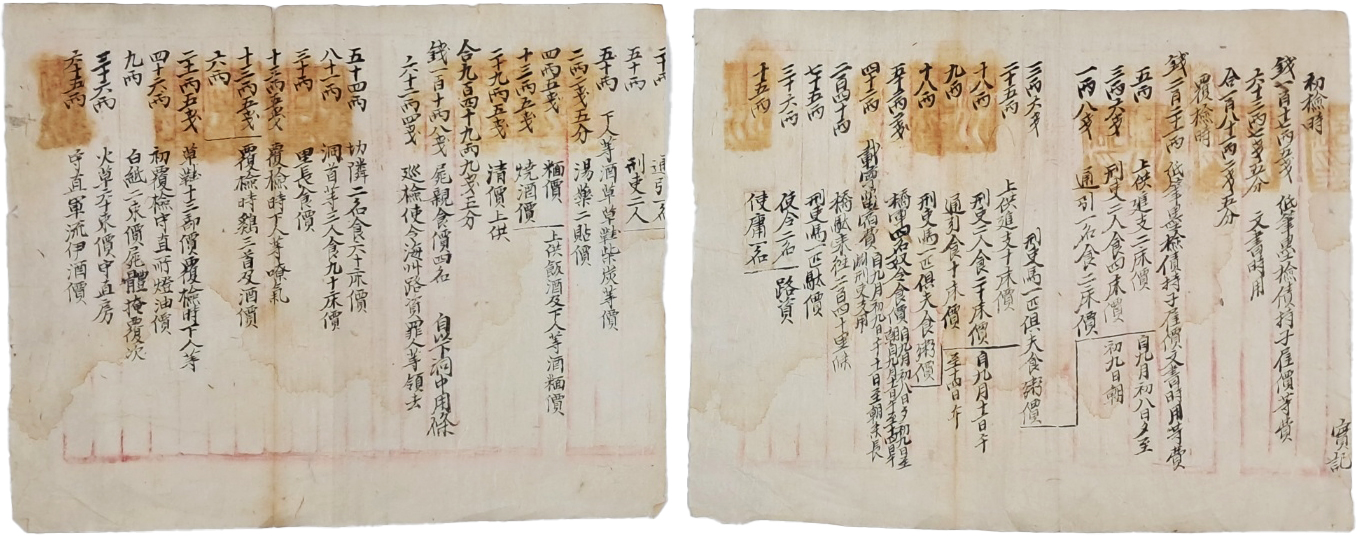 實記
初檢時
錢一百十二兩五戔 紙筆墨檢債持子雇價等費
六十三兩七戔五分 文書時用
合一百八十兩二戔五分
覆檢時
錢二百二十一兩 紙筆墨檢債持子雇價文書時用等費
五兩 上供進支二床價 自九月初八日夕至
三兩六戔 刑吏二人食四床價 初九日朝
一兩八戔 通引一名食二床價
三兩六戔 刑吏馬一匹俱夫食粥價
二十五兩 上供進支十床價
十八兩 刑吏二人食二十床價 自九月十一日午
九兩 通引食十床價 至十四日午
十八兩 刑吏馬一匹俱夫食粥價
四十二兩
二百四十兩 橋軾來往二百四十里條
七十五兩 刑吏馬一匹駄價
三十六兩 使令二名 路資
十五兩 使庸一名
二十兩 通引一名
五十兩 刑吏二人
五十兩 下人等酒草草鞋柴炭等價
二兩二戔五分 湯藥二貼價
四兩五戔 糆價 上供飯酒及下人等酒糆價
十三兩五戔 燒酒價
二十九兩五戔 清價上供
合九百四十九兩九戔五分
錢一百十兩八戔 屍親食價四名 自以下洞中用條
六十二兩四戔 巡檢使令海州路資罪人等領去
五十四兩 切隣二名食六十床價
八十一兩 洞首等三人食九十床價
三十兩 里長食價
十三兩五戔 覆檢時下人等嘹氣
十三兩五戔 覆檢時鷄三首及酒價
六兩
二十二兩五戔 草鞋十三部價覆檢時下人等
四十六兩 初覆檢守直所燈油價
九兩 白紙二束價屍體掩覆次
三十六兩 火草二十束價守直房
六十五兩 守直軍流伊酒價